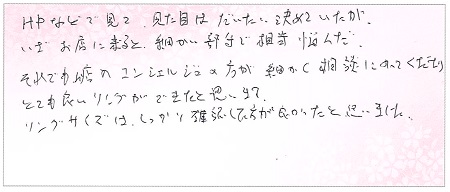 HPなどで見て、見た目はだいたい決めていたが、
いざお店に来ると、細かい部分で相当悩んだ。
それでもお店のコンシェルジュの方が細かく相談にのってくださり
とても良いリングができたと思います。
リングサイズは、しっかり確認した方が良かったと思いました。